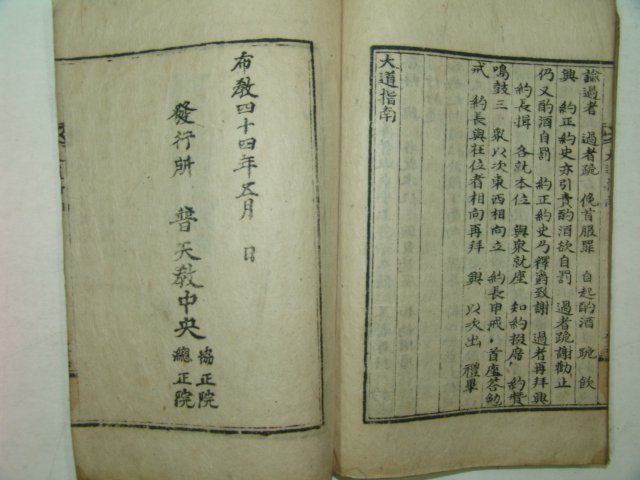 諭過者 過者跪 俛首服罪 自起酌酒 跪飮
興 約正約史亦引責酌酒欲自罰 過者跪謝勸止
仍又酌酒自罰 約正約史乃釋爵致謝 過者再拜興
約長揖 各就本位 興衆就座 知約掇席 約贊
鳴鼓三 衆以次東西相向立 約長申戒 首座答
戒 約長與在位者相向再拜 興 以次出 禮畢
大道指南
布敎四十四年五月 日
發行所 普天敎中央
協正院
總正院